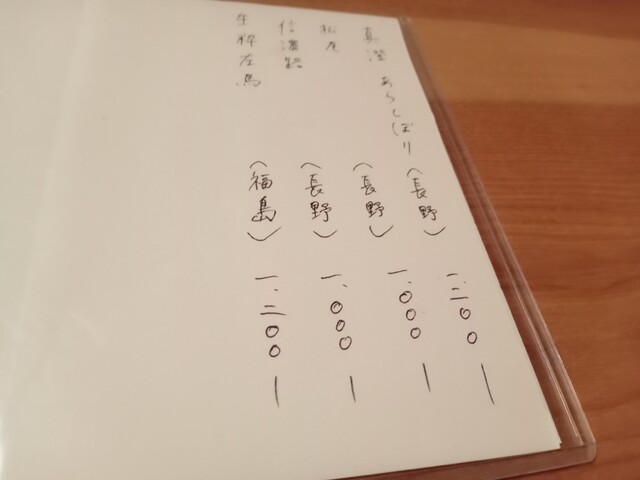 真澄 あらしぼり (長野) 一、二〇〇ー
松尾 (長野) 一、〇〇〇ー
(長野) 一、〇〇〇ー
生粋左馬 (福島) 一、二〇〇ー